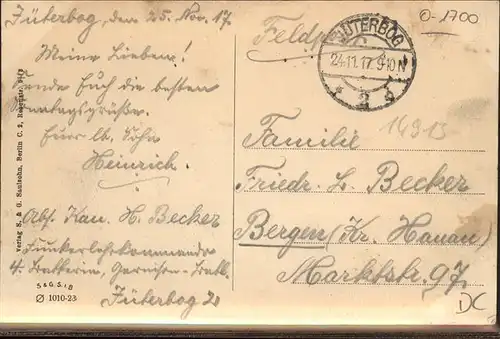 Jüterbog, den 25. Nov. 17.
Meine Lieben!
Sende Euch die besten
Sonntagsgrüße.
Euer lb. Sohn
Heinrich.
Abs. Kan. H. Becker
Funkerlehrkommando
4. Batterie,
Jüterbog 2
Verlag S. & G. Saulsohn, Berlin C. 2,
S & G. S. i. B
1010-23
O-1700
Feldp
JÜTERBOG
24.11.17. 9-10 N
16913
Familie
Friedr. L. Becker
Bergen (Kr. Hanau)
Marktstr. 97.
DC